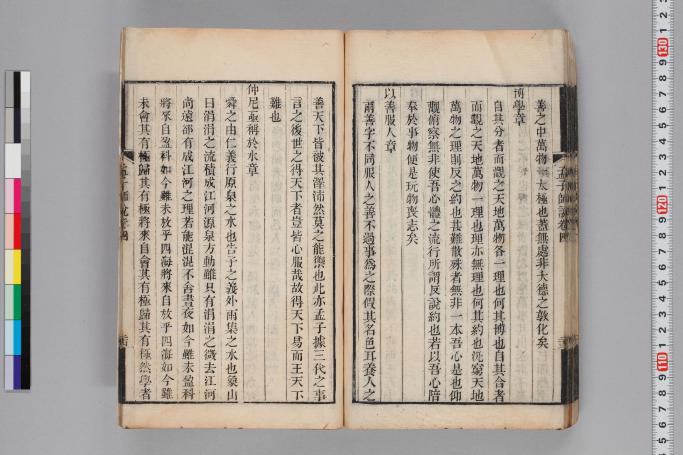 善之中萬物一太極也蓋無處非大德之敦化矣
博學章
自其分者而觀之天地萬物各一理也何其博也自其合者
而觀之天地萬物一理也理亦無理也何其約也泛窮天地
萬物之理則反之約也甚難散殊者無非一本吾心是也仰
觀俯察無非使吾心體之流行所謂反說約也若以吾心陪
奉於事物便是玩物喪志矣
以善服人章
兩善字不同服人之善不過事為之際假其名色耳養人之
孟子師說卷四
善天下皆被其澤沛然莫之能禦也此亦孟子據三代之事
言之後世之得天下者豈皆心服哉故得天下易而王天下
難也
仲尼亟稱於水章
舜之由仁義行原泉之水也告子之義外雨集之水也象山
曰涓涓之流積成江河源泉方動雖只有涓涓之微去江河
尚遠卻有成江河之理若能混混不舍晝夜如今雖未盈科
將來自盈科如今雖未放乎四海將來自放乎四海如今雖
未會其有極歸其有極將來自會其有極歸其有極然學者
130
120
110